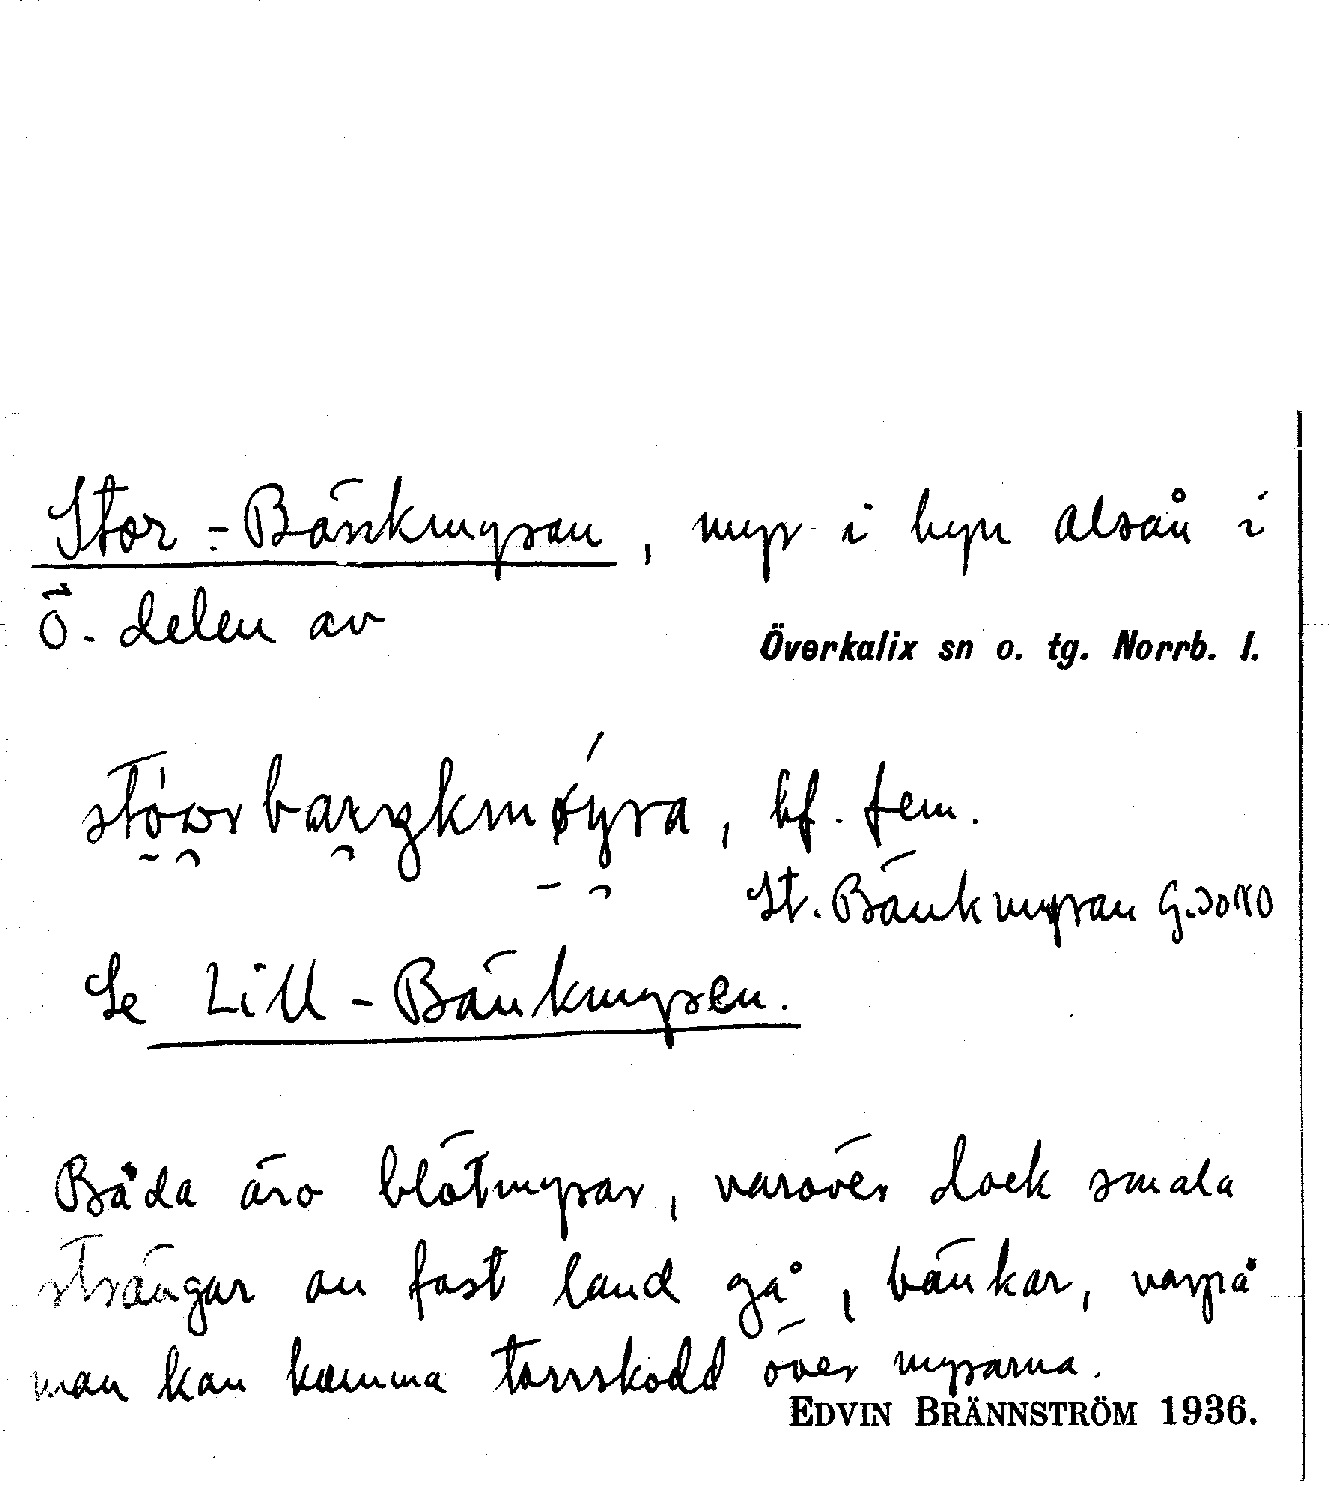 Stor-Bänkmyran, myr i byn Alsån i
ö. delen av
Överkalix sn o. tg. Norrb. l.
bf. fem.
St. Bänkmyran
Se Lill-Bänkmyren.
Båda äro blötmyrar, varöver dock smala
strängar av fast land gå, bänkar, varpå
man kan komma torrskodd över myrarna.
EDVIN BRÄNNSTRÖM 1936.